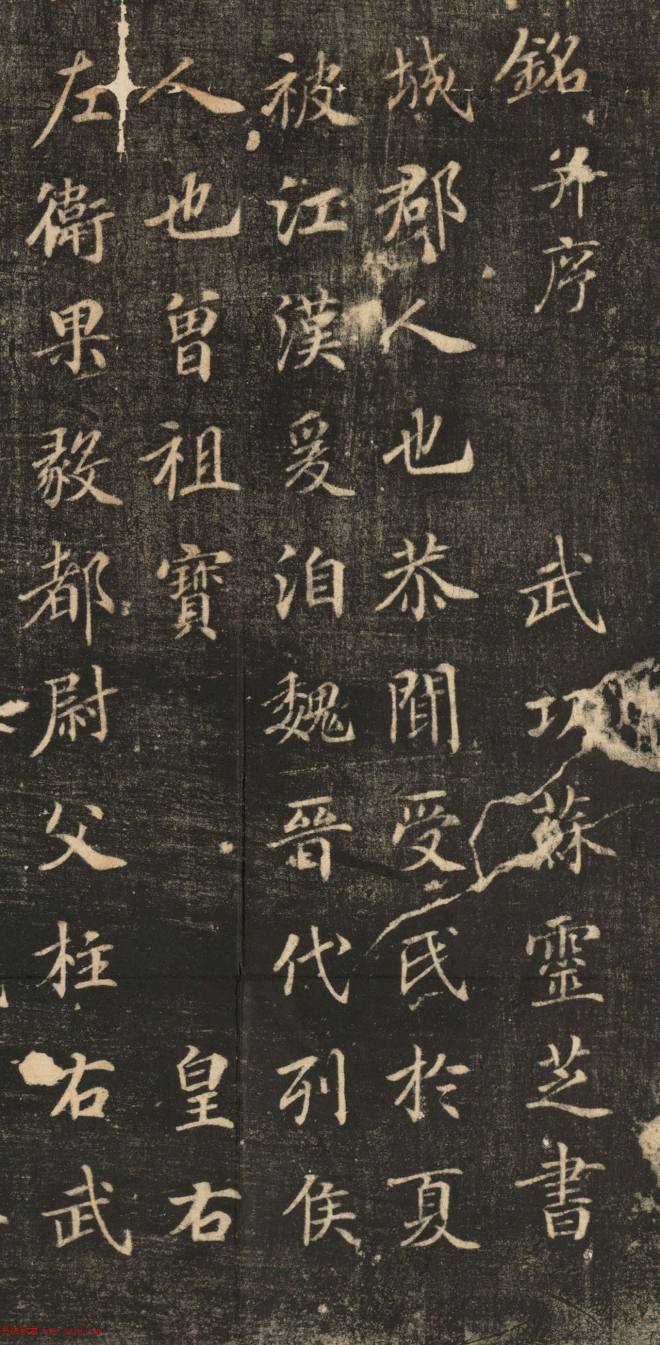 銘并序 武功蘇靈芝書
城郡人也恭聞受氏於夏
被江漢爰洎魏晉代列侯
人也曾祖寶 皇右
左衛果毅都尉父柱右武